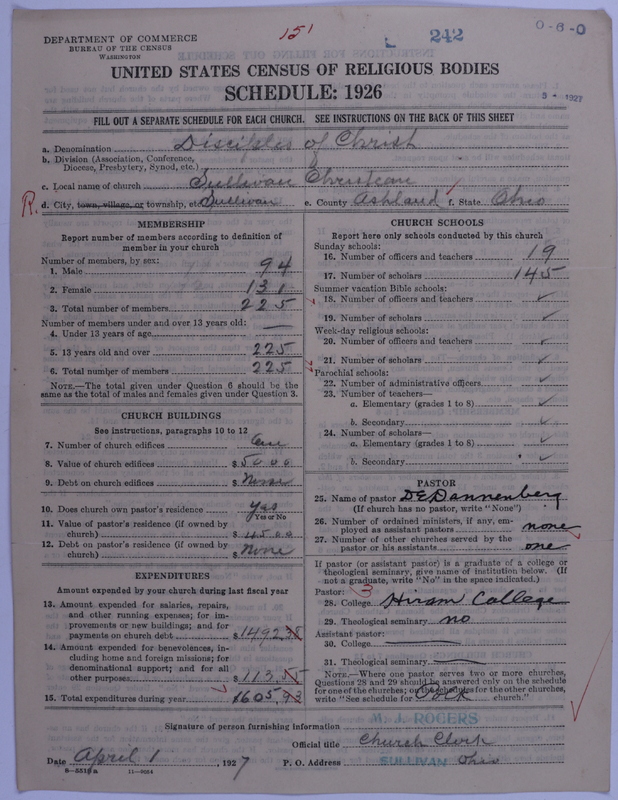 DEPARTMENT OF COMMERCE
BUREAU OF THE CENSUS
WASHINGTON
151
242
0-6-0
1927
UNITED STATES CENSUS OF RELIGIOUS BODIES
SCHEDULE: 1926
FILL OUT A SEPARATE SCHEDULE FOR EACH CHURCH. SEE INSTRUCTIONS ON THE BACK OF THIS SHEET
a. Denomination Disciples of Christ
b. Division (Association, Conference,
Diocese, Presbytery, Synod, etc.)
c. Local name of church Sullivan Christian
R.
d. City, town, village, or township, etc. Sullivan e. County Ashland f. State Ohio
MEMBERSHIP
Report number of members according to definition of
member in your church
Number of members, by sex:
1. Male 94
2. Female 131
3. Total number of members 225
Number of members under and over 13 years old:
4. Under 13 years of age —
5. 13 years old and over 225
6. Total number of members 225
NOTE.—The total given under Question 6 should be the
same as the total of males and females given under Question 3.
CHURCH BUILDINGS
See instructions, paragraphs 10 to 12
7. Number of church edifices One
8. Value of church edifices $ 5000
9. Debt on church edifices $ None
10. Does church own pastor's residence? Yes
Yes or No
11. Value of pastor's residence (if owned by
church) $ 4500
12. Debt on pastor's residence (if owned by
church) $ None
EXPENDITURES
Amount expended by your church during last fiscal year
13. Amount expended for salaries, repairs,
and other running expenses; for im-
provements or new buildings; and for
payments on church debt $ 1492.38
14. Amount expended for benevolences, in-
cluding home and foreign missions; for
denominational support; and for all
other purposes $ 113.55
15. Total expenditures during year $1605.93
CHURCH SCHOOLS
Report here only schools conducted by this church
Sunday schools:
16. Number of officers and teachers 19
17. Number of scholars 145
Summer vacation Bible schools:
18. Number of officers and teachers ✓
19. Number of scholars ✓
Week-day religious schools:
20. Number of officers and teachers ✓
21. Number of scholars ✓
Parochial schools:
22. Number of administrative officers ✓
23. Number of teachers—
a. Elementary (grades 1 to 8) ✓
b. Secondary ✓
24. Number of scholars—
a. Elementary (grades 1 to 8) ✓
b. Secondary ✓
PASTOR
25. Name of pastor D E Dannenberg
(If church has no pastor, write "None")
26. Number of ordained ministers, if any, em-
ployed as assistant pastors none
27. Number of other churches served by the
pastor or his assistants one
If pastor (or assistant pastor) is a graduate of a college or
theological seminary, give name of institution below. (If
not a graduate, write "No" in the space indicated.)
Pastor: 3
28. College Hiram College
29. Theological seminary no
Assistant pastor:
30. College
31. Theological seminary
NOTE.—Where one pastor serves two or more churches,
Questions 28 and 29 should be answered only on the schedule
for one of the churches; on the schedules for the other churches,
write "See schedule for church."
Signature of person furnishing information M. J. ROGERS
Official title Church Clerk
Date April 1, 1927 P. O. Address SULLIVAN Ohio
8—551 a 11—9284